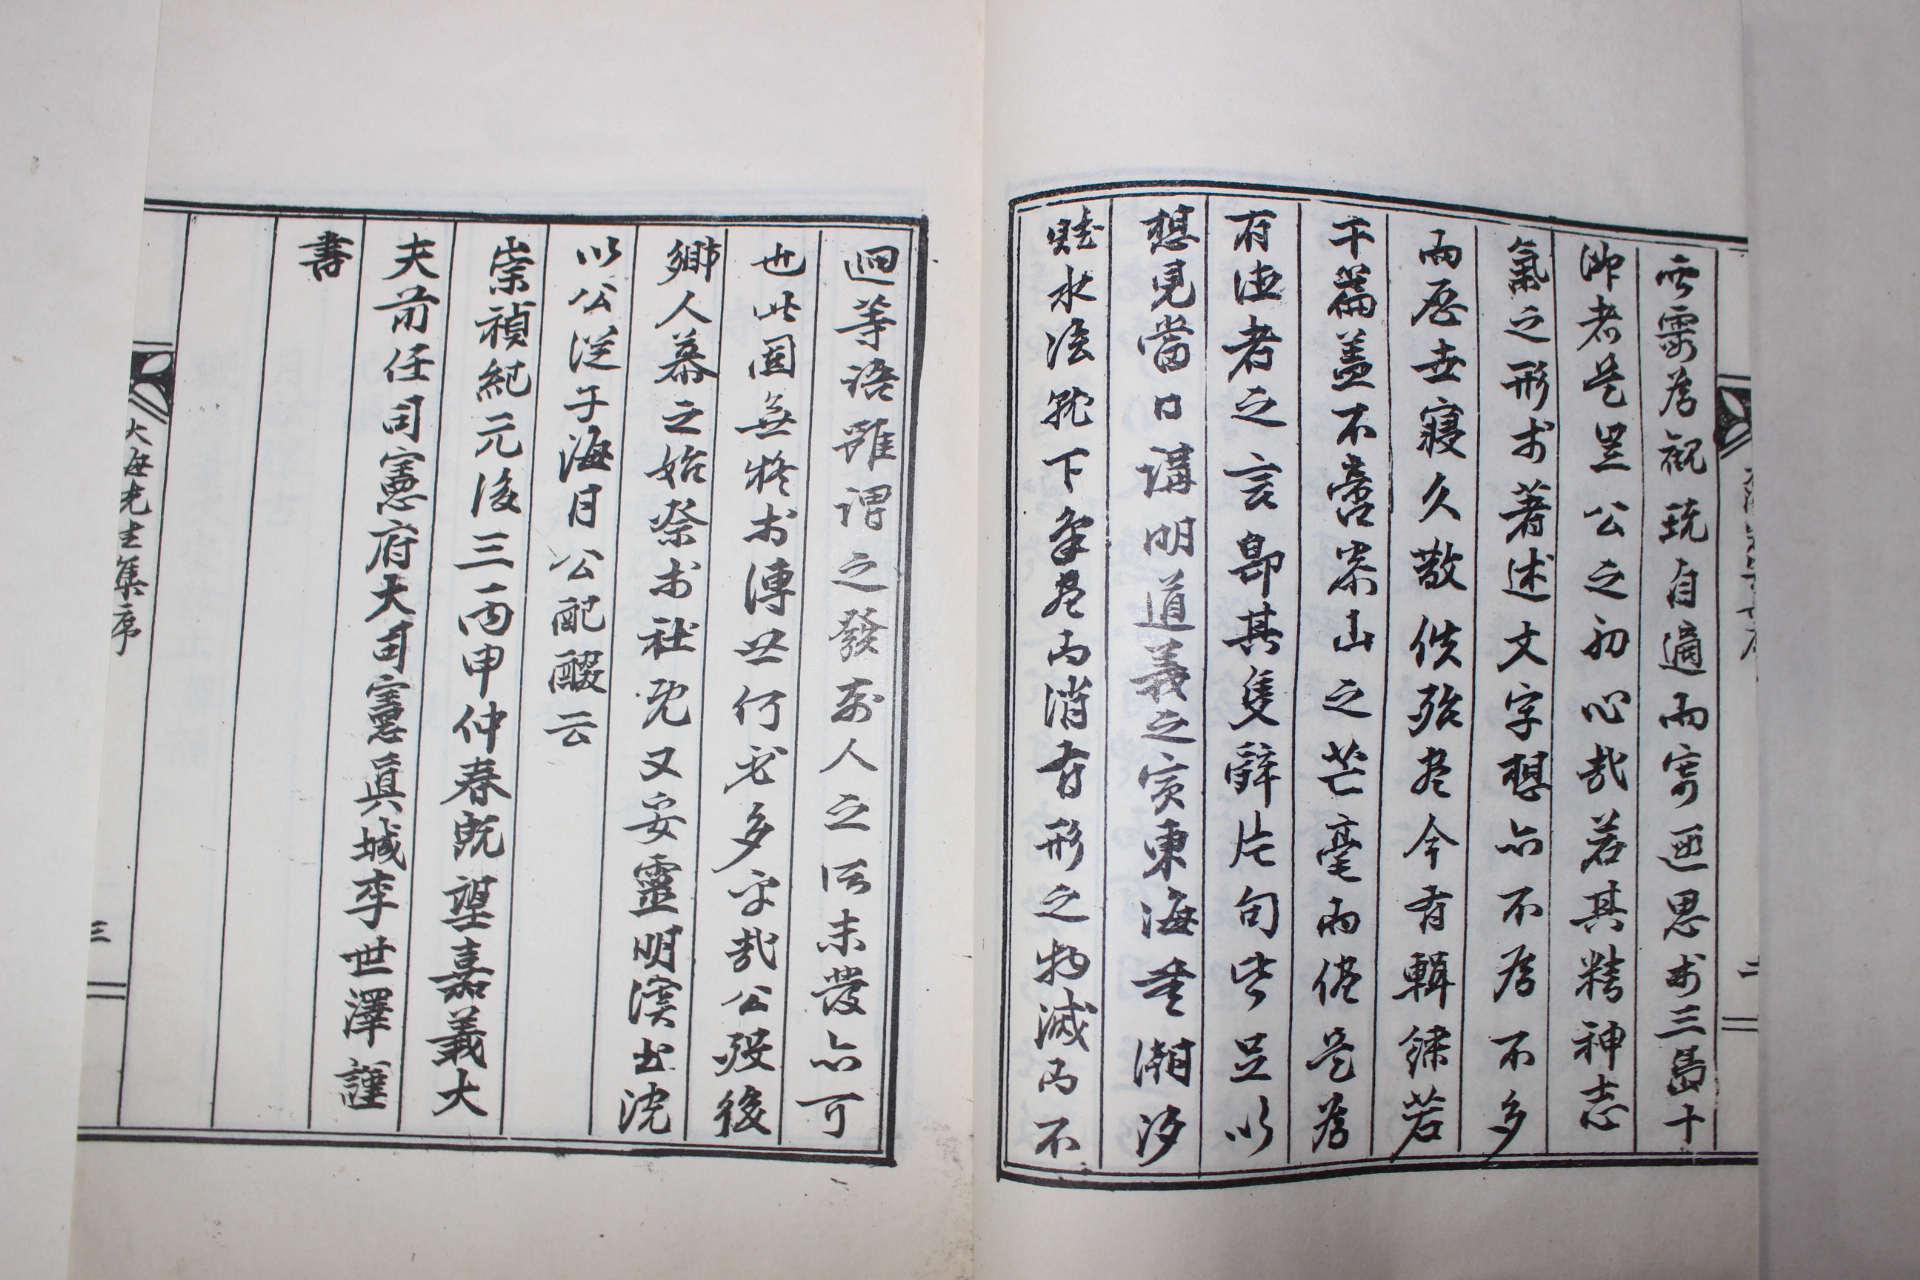 雲霄為觀玩自適而寄遐思於三島十
洲者是豈公之初心哉若其精神志
氣之形於著述文字想亦不為不多
而歷世寢久散佚殆盡今有輯綠若
干篇蓋不啻泰山之芒毫而僅是為
有德者之言即其隻辭片句皆足以
想見當日講明道義之實東海重潮汐
水 下 盡而消有形之物滅而不
迴等語雖謂之發前人之所未發亦可
也此固無疑於傳世何必多乎哉公歿後
鄉人慕之始祭於社既又妥靈明溪書院
以公從子海月公配醊云
崇禎紀元後三丙申仲春既望嘉義大
夫前任司憲府大司憲眞城李世澤謹
書
大海先生集序
三
二